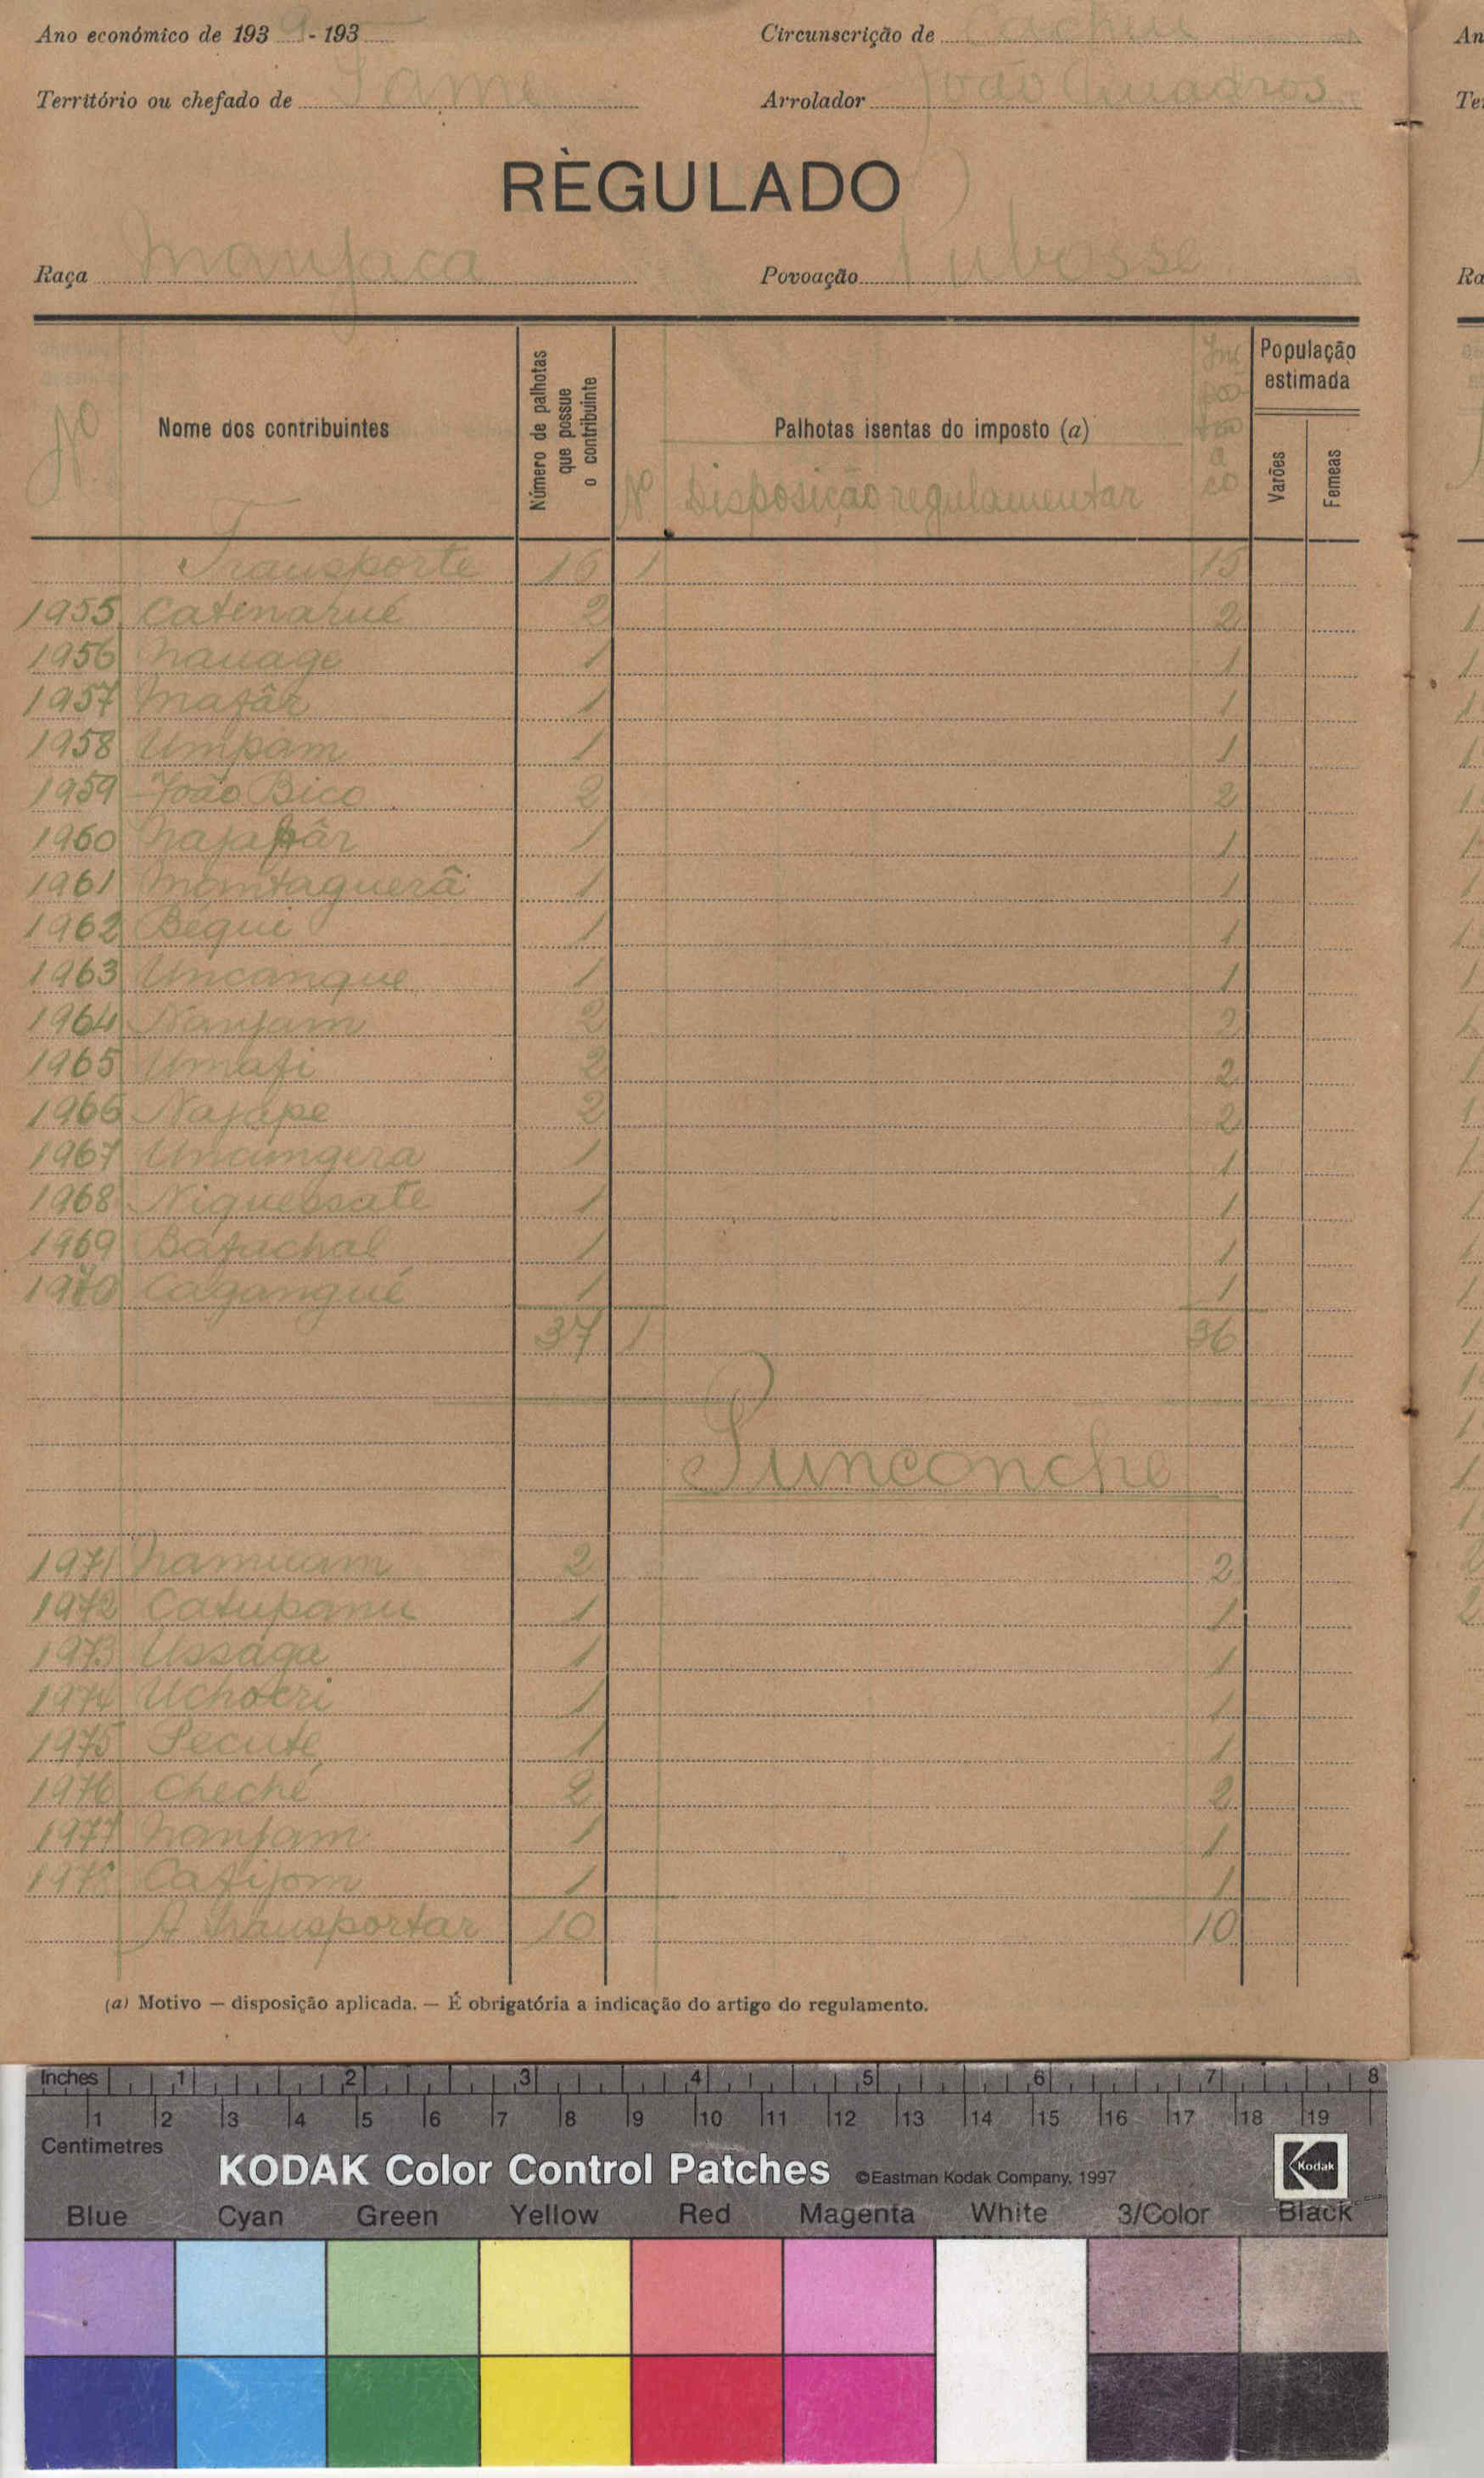 Ano económico de 1939-193
Circunscrição de
Território ou chefado de Tame
Arrolador João Quadros
RÈGULADO
Raça Manjaca
Povoação
Nº
Nome dos contribuintes
Número de palhotas que possue o contribuinte
Palhotas isentas do imposto (a)
Nº Disposição regulamentar
População estimada
Varões
Femeas
Transporte 16 1 15
1955 Catenarué 2 2
1956 Nauage 1 1
1957 Mafâr 1 1
1958 Umpam 1 1
1959 João Bico 2 2
1960 1 1
1961 Montaguerã 1 1
1962 Bequi 1 1
1963 Uncanque 1 1
1964 Nanjam 2 2
1965 Umafi 2 2
1966 Najape 2 2
1967 Uncungera 1 1
1968 Niquessate 1 1
1969 Bafachal 1 1
1970 Cagangué 1 1
37 1 36
Punconche
1971 Namuam 2 2
1972 Catupanu 1 1
1973 Ussága 1 1
1974 Uchocri 1 1
1975 Pecute 1 1
1976 Cheché 2 2
1977 Nanjam 1 1
1978 Cafijom 1 1
A transportar 10 10
(a) Motivo — disposição aplicada. — É obrigatória a indicação do artigo do regulamento.
An
Te
Ra
Inches 1 2 3 4 5 6 7 8
1 2 3 4 5 6 7 8 9 10 11 12 13 14 15 16 17 18 19
Centimetres
KODAK Color Control Patches ©Eastman Kodak Company, 1997 Kodak
Blue Cyan Green Yellow Red Magenta White 3/Color Black